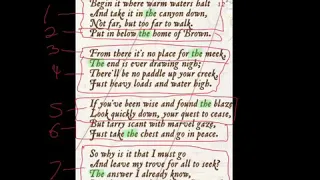 Begin it where warm waters halt
1 And take it in the canyon down,
Not far, but too far to walk.
2 Put in below the home of Brown.
3 From there it's no place for the meek,
The end is ever drawing nigh;
4 There'll be no paddle up your creek,
Just heavy loads and water high.
5 If you've been wise and found the blaze,
Look quickly down, your quest to cease,
6 But tarry scant with marvel gaze,
Just take the chest and go in peace.
So why is it that I must go
7 And leave my trove for all to seek?
The answer I already know,